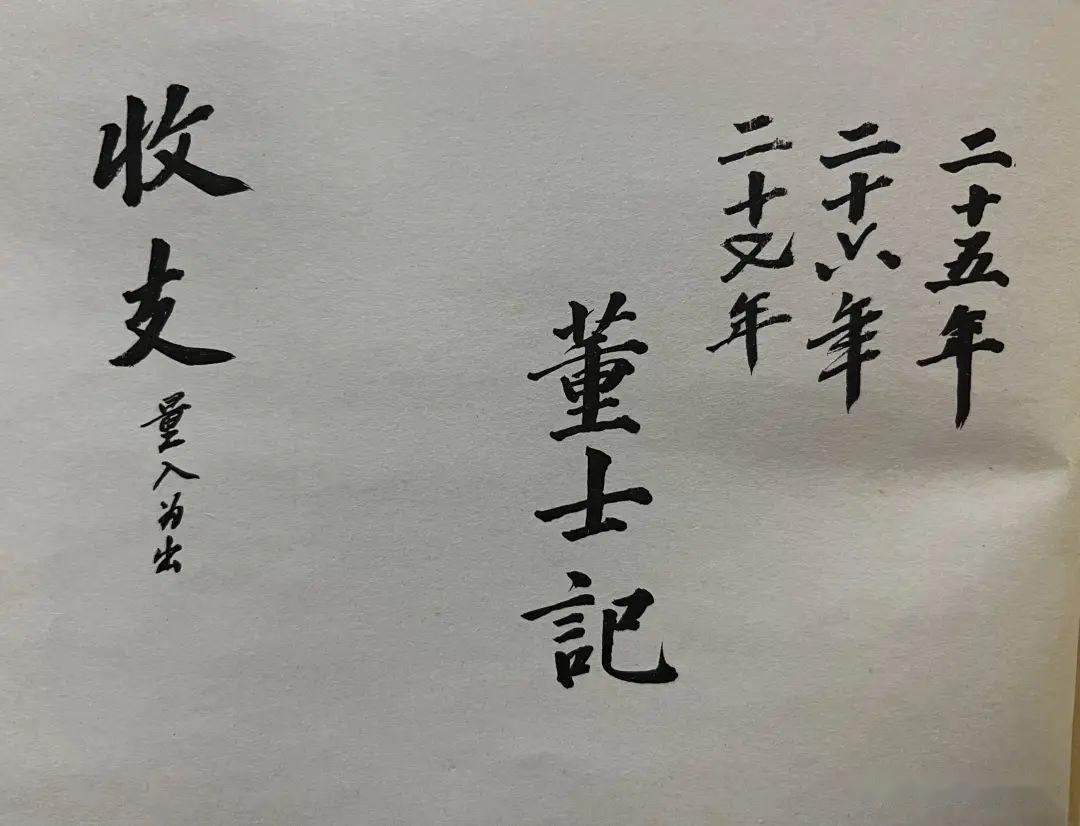 二十五年
二十六年
二十又年
董士記
收支
量入为出